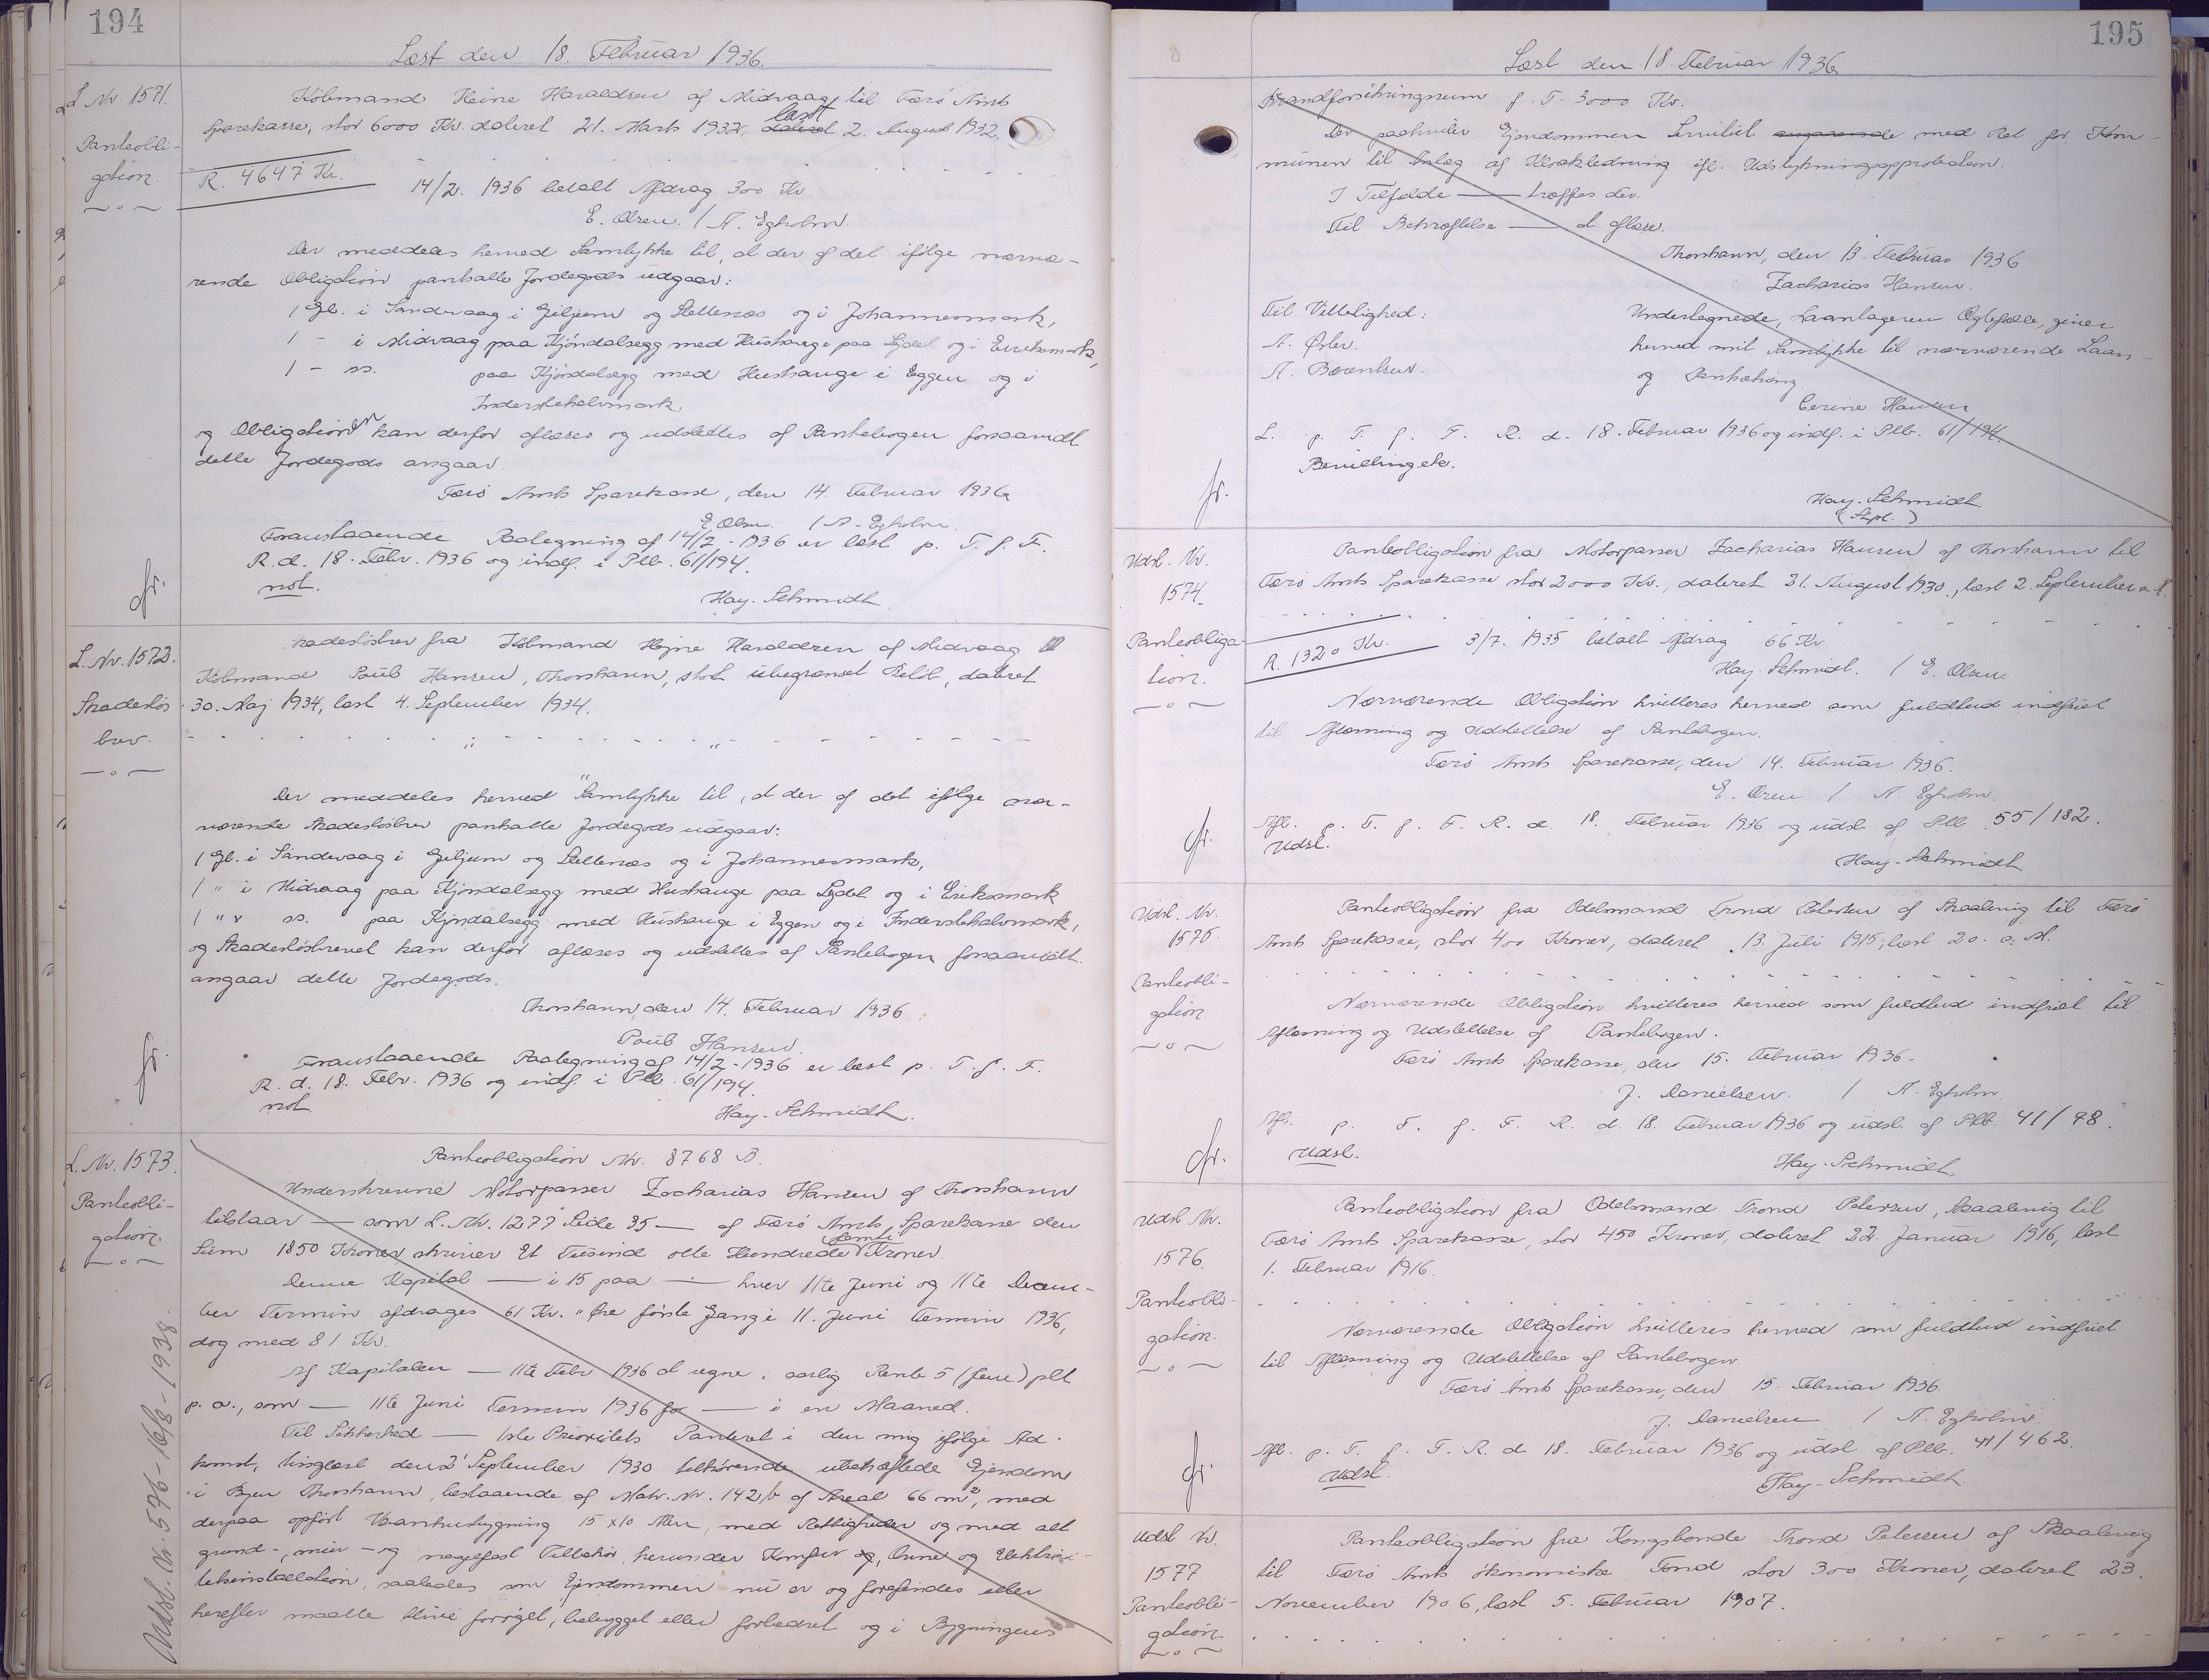 194
Læst den 18. Februar 1936.
L Nr. 1571.
Panteobli-
gation.
Købmand Heine Haraldsen af Midvaag til Færø Amts
Sparekasse, stor 6000 Kr. dateret 21. Marts 1932, dateret læst 2. August 1932.
R. 4647 Kr.
14/2. 1936 betalt Afdrag 300 Kr.
E. Olsen. / A. Egholm
Der meddeles herved Samtykke til, at der af det ifølge nærvæ-
rende Obligation panthafte Jordegods udgaar:
1 Gl. i Sandvaag i Giljum og Stellenæs og i Johannesmark,
1 - i Midvaag paa Kjóndalsegg med Hushauge paa Lydet og i Eriksmark,
1 - ss. paa Kjóndalsegg med Hushauge i Eggen og i
Inderstehalvmark,
og Obligationen kan derfor aflæses og udslettes af Pantebogen forsaavidt
dette Jordegods angaar.
Færø Amts Sparekasse, den 14. Februar 1936
E. Olsen. / A. Egholm.
Foranstaaende Paategning af 14/2 - 1936 er læst p. T. f. F.
R. d. 18. Febr. 1936 og indf. i Ptb. 61/194.
not.
Hay-Schmidt
fr.
L. Nr. 1572.
Skadesløs
brev.
Skadesløsbrev fra Købmand Hejne Haraldsen af Midvaag til
Købmand Poul Hansen, Thorshavn, stort ubegrænset Beløb, dateret
30. Maj 1934, læst 4. September 1934.
Der meddeles herved Samtykke til, at der af det ifølge nær-
værende Skadesløsbrev panthafte Jordegods udgaar:
1 Gl. i Sandevaag i Giljum og Stellenæs og i Johannesmark,
1 " i Midvaag paa Kjóndalsegg med Hushauge paa Lydet og i Eriksmark
1 " ss. paa Kjóndalsegg med Hushauge i Eggen og i Inderstehalvmark,
og Skadesløsbrevet kan derfor aflæses og udslettes af Pantebogen forsaavidt
angaar dette Jordegods.
Thorshavn, den 14. Februar 1936.
Poul Hansen.
Foranstaaende Paategning af 14/2 - 1936 er læst p. T. f. F.
R. d. 18. Febr. 1936 og indf. i Ptb. 61/194.
not
Hay-Schmidt.
fr.
L. Nr. 1573.
Panteobli-
gation.
Udsl. Nr. 596 - 16/8 - 1938
Panteobligation Nr. 8768 B.
Underskrevne Motorpasser Zacharias Hansen af Thorshavn
tilstaar — som L. Nr. 1277 Side 35 — af Færø Amts Sparekasse den
Sum 1850 Kroner skriver Et Tusind otte Hundrede femti Kroner.
Denne Kapital — i 15 paa — hver 11te Juni og 11te Decem-
ber Termin afdrages 61 Kr. " Øre første Gang i 11. Juni Termin 1936,
dog med 81 Kr.
Af Kapitalen — 11te Febr 1936 at regne i aarlig Rente 5 (fem) pCt
p. a., som — 11te Juni Termin 1936 for — i en Maaned.
Til Sikkerhed — 1ste Prioritets Panteret i den mig ifølge Ad-
komst, tinglæst den 2' September 1930 tilhørende ubehæftede Ejendom
i Byen Thorshavn, bestaaende af Matr. Nr. 142 b af Areal 66 m², med
derpaa opført Vaanhusbygning 15 x 10 Alen, med Rettigheder og med alt
grund-, mur- og nagelfast Tilbehør, herunder Komfur og, Ovne og Elektrici-
tetsinstallation, saaledes som Ejendommen nu er og forefindes eller
herefter maatte blive forøget, bebygget eller forbedret og i Bygningens
195
Læst den 18. Februar 1936
Brandforsikringssum f. T. 3000 Kr.
Der paahviler Ejendommen Servitut angaaende med Ret for Kom-
munen til Anlæg af Kloakledning ifl. Udstykningsapprobation.
I Tilfælde — træffes der.
Til Bekræftelse — at aflæse.
Thorshavn, den 13. Februar 1936
Zacharias Hansen.
Til Vitterlighed:
A.
A. Bærentsen.
Undertegnede, Laantagerens Ægtefælle, giver
herved mit Samtykke til nærværende Laan
og Pantsætning.
Cerine Hansen
L. p. T. f. F. R. d. 18. Februar 1936 og indf. i Ptb. 61/194.
Bevilling etc.
Hay-Schmidt
(Stpl.)
fr.
Udsl. Nr.
1574.
Panteobliga-
tion.
Panteobligation fra Motorpasser Zacharias Hansen af Thorshavn til
Færø Amts Sparekasse stor 2000 Kr., dateret 31. August 1930, læst 2. September a. A.
R. 1320 Kr.
3/7. 1935 betalt Afdrag 66 Kr
Hay-Schmidt. / E. Olsen
Nærværende Obligation kvitteres herved som fuldtud indfriet
til Aflæsning og Udslettelse af Pantebogen.
Færø Amts Sparekasse, den 14. Februar 1936.
E. Olsen / A. Egholm.
Afl. p. T. f. F. R. d. 18. Februar 1936 og udsl. af Ptb 55/182.
Udsl.
Hay-Schmidt
fr.
Udsl. Nr.
1575.
Panteobli-
gation.
Panteobligation fra Odelsmand Trond Petersen af Skaalevig til Færø
Amts Sparekasse, stor 400 Kroner, dateret 13. Juli 1915; læst 20. a. M.
Nærværende Obligation kvitteres herved som fuldtud indfriet til
Aflæsning og Udslettelse af Pantebogen.
Færø Amts Sparekasse, den 15. Februar 1936.
J. Danielsen. / A. Egholm.
Afl. p. T. f. F. R. d. 18. Februar 1936 og udsl. af Ptb. 41/98.
Udsl.
Hay-Schmidt.
fr.
Udsl Nr.
1576.
Panteobli-
gation.
Panteobligation fra Odelsmand Trond Petersen, Skaalevig til
Færø Amts Sparekasse, stor 450 Kroner, dateret 22. Januar 1916, læst
1. Februar 1916.
Nærværende Obligation kvitteres herved som fuldtud indfriet
til Aflæsning og Udslettelse af Pantebogen.
Færø Amts Sparekasse, den 15. Februar 1936.
J. Danielsen / A. Egholm
Afl. p. T. f. F. R. d. 18. Februar 1936 og udsl af Ptb. 41/462.
Udsl.
Hay-Schmidt.
fr.
Udsl Nr.
1577
Panteobli-
gation.
Panteobligation fra Kongsbonde Trond Petersen af Skaalevig
til Færø Amts økonomiske Fond stor 300 Kroner, dateret 23.
November 1906, læst 5. Februar 1907.